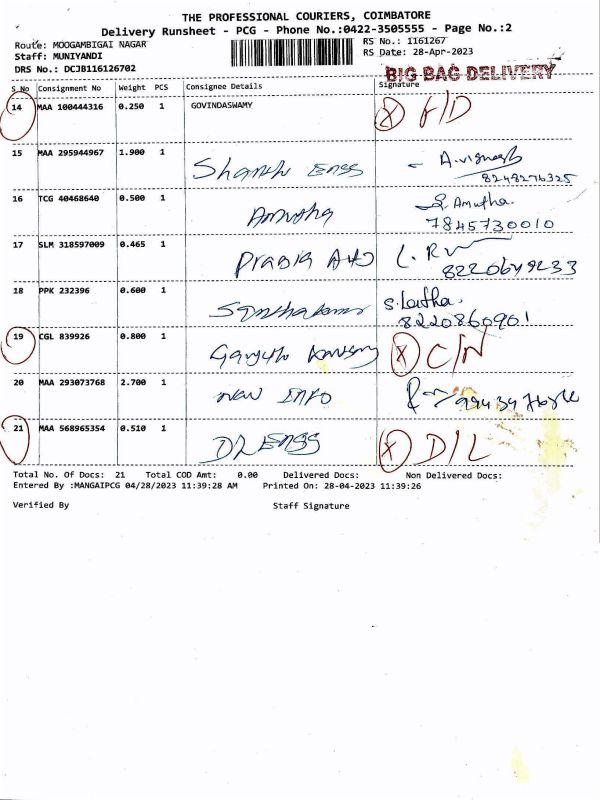 THE PROFESSIONAL COURIERS, COIMBATORE
Delivery Runsheet - PCG - Phone No.:0422-3505555 - Page No.:2
Route: MOOGAMBIGAI NAGAR
RS No.: 1161267
Staff: MUNIYANDI
RS Date: 28-Apr-2023
DRS No.: DCJB116126702
BIG BAG DELIVERY
S No Consignment No Weight PCS Consignee Details Signature
14 MAA 100444316 0.250 1 GOVINDASWAMY X F/D
15 MAA 295944967 1.900 1 Shanthi Engg A.Vignesh
8248276325
16 TCG 40468640 0.500 1 Amutha S. Amutha.
7845730010
17 SLM 318597009 0.465 1
18 PPK 232396 0.600 1 S. Latha.
8220860901
19 CGL 839926 0.800 1 X C/N
20 MAA 293073768 2.700 1 New Info
21 MAA 568965354 0.510 1 DL Engg X D/L
Total No. Of Docs: 21 Total COD Amt: 0.00 Delivered Docs: Non Delivered Docs:
Entered By :MANGAIPCG 04/28/2023 11:39:28 AM Printed On: 28-04-2023 11:39:26
Verified By Staff Signature